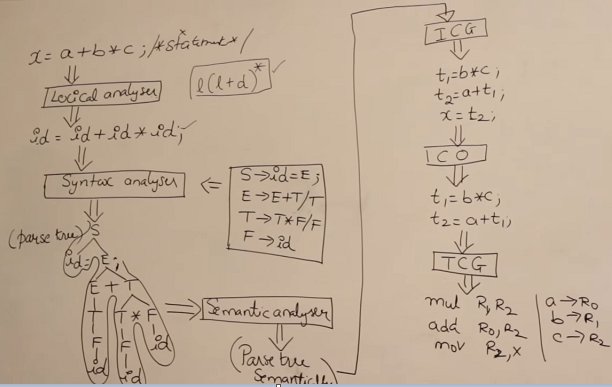 x = a + b * c ; /* statement */
Lexical analyser
l(l+d)*
id = id + id * id ;
Syntax analyser
S → id = E ;
E → E + T / T
T → T * F / F
F → id
(parse tree) S
id = E ;
E + T
T T * F
F F id
id id
Semantic analyser
(Parse tree
Semantically
ICG
t₁ = b * c ;
t₂ = a + t₁ ;
x = t₂ ;
CO
t₁ = b * c ;
t₂ = a + t₁ ;
TCG
mul R₁, R₂
add R₀, R₂
mov R₂, x
a → R₀
b → R₁
c → R₂